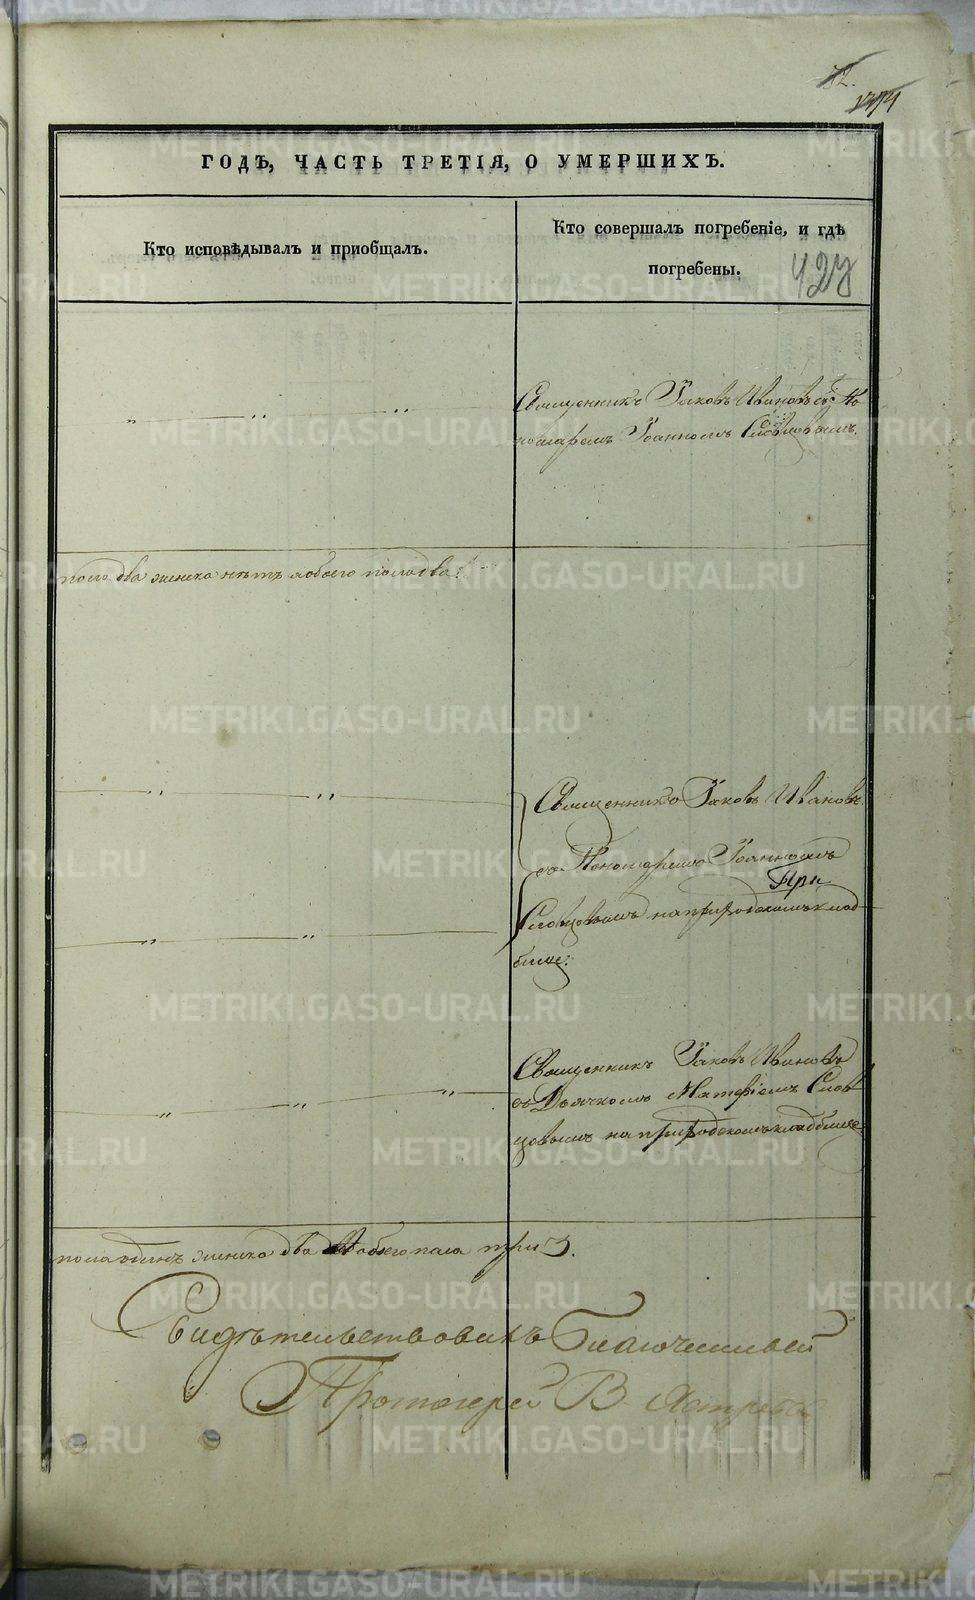 ГОДЪ, ЧАСТЬ ТРЕТІЯ, О УМЕРШИХЪ.
Кто исповѣдывалъ и пріобщалъ.
Кто совершалъ погребеніе, и гдѣ
погребены.
Священникъ Іаковъ Ивановъ съ По
номаремъ Іоанномъ Словцовымъ.
пола два женска нѣтъ а обоего пола два.
Священникъ Іаковъ Ивановъ
съ Пономаремъ Іоанномъ
При
Словцовымъ на приходскомъ клад
бище.
Священникъ Іаковъ Ивановъ
съ Дьячкомъ Матфіемъ Слов
цовымъ на приходскомъ кладбище
пола одинъ женска два обоего пола три 3.
Свидѣтельствовалъ Благочинный
Протоіерей В.
METRIKI.GASO-URAL.RU